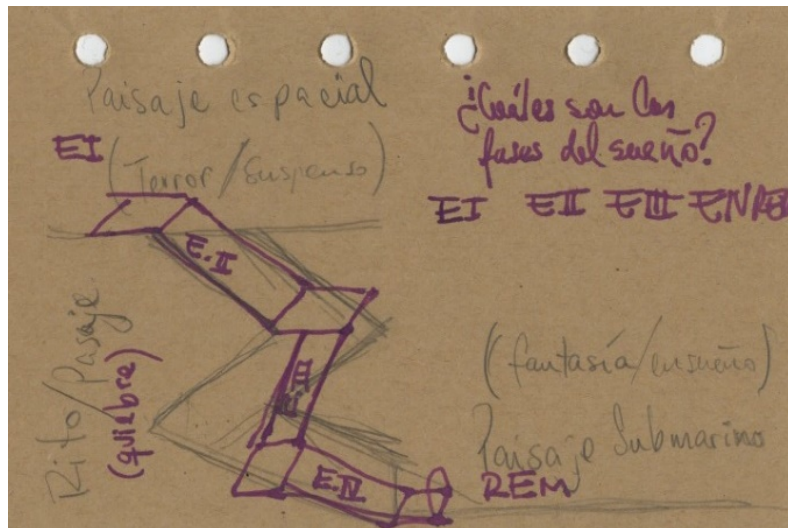 Paisaje espacial
EI (Terror/Suspenso)
¿Cuáles son las
fases del sueño?
EI EII EIII EIV REM
E.II
Rito/Pasaje
(quiebre)
E.III
E.IV
(fantasía/ensueño)
Paisaje Submarino
REM